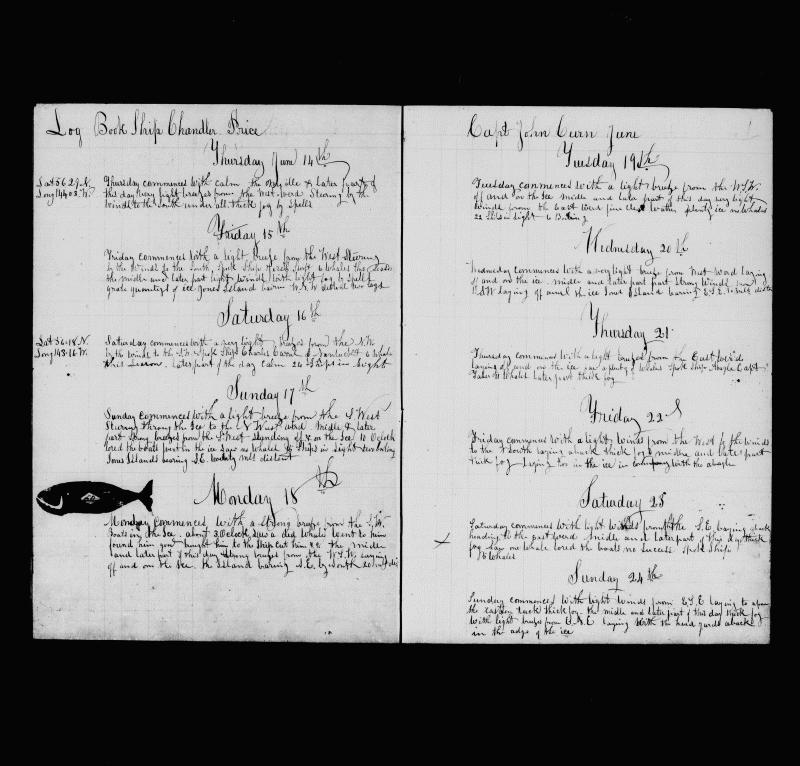 Log Book Ship Chandler Price
Thursday June 14th
Lat 56.29 N.
Long 144.03 W.
Thursday commences with calm the middle & later part of
this day very light breezes from the West-werd Steering by the
Wind to the South under all thick fog by Spells
Friday 15th
Friday commences with a light breeze from the West Steering
by the Wind to the South, Spok Ship 6 whales this season
the middle and later part light winds with light fog by Spells
grate quantity of ice Jones Island bairin W.N.W
Saturday 16th
Lat 56.18 N.
Long 148.16 W.
Saturday commences with a very light breezes from the N.W
by the wind to the Spok Ship Charles Carol of Nantuckett 6 whale
this Season. later part of the day calm 24 Ships in Sight
Sunday 17th
Sunday commences with a light breeze from the S West
Stering throug the Ice to the N West werd Middle & later
part Strong breezes from the S West Standing off & on the Ice 10 Oclock
lored the boats part in the ice Saw no whales Ships in Sight
Jones Islands bearing S.E. twenty mls distant
Monday 18th
Monday commences with a strong breeze from the S.W.
Boats in the Ice. about 3 Oclock saw a ded whale went to him
found him good brought him to the Ship cut him &c the middle
and later part of this day Strong breezes from the W.S.W. laying
off and on the Ice. the Island baring S.E. by South 20 mls dis
Capt John Curn June
Tuesday 19th
Tuesday commences with a light breeze from the W.S.W.
off and on the Ice middle and later part of this day very light
winds from the East werd fine clear wather plenty ice no whales
22 Ships in Sight 6 Boiling
Wednesday 20th
Wednesday commences with a very light breeze from West-ward laying
off and on the ice middle and later part part Strong Winds from
S.S.W laying off and on the ice Jones Island baring E.S.E. 15 mls distan
Thursday 21
Thursday commences with a light breezes from the East werd
laying off and on the ice saw a plenty of whales Spok Ship Aragle Capt
Taber 4 Whales later part thick fog
Friday 22
Friday commences with a light winds from the West by the winds
to the South laying aback thick fog middle and late part
thick fog Laying too in the ice in company with the aragle
Saturday 23
Saturday commences with light winds from the S.E. laying
heading to the east werd middle and laterpart of this day thick
fog Saw one whale lored the boats no success Spok Ship
16 whales
Sunday 24th
Sunday commences with light winds from E.S.E laying to apon
the eastern tack thick fog. the middle and later part of this day thick fog
With light breezes from E.N.E laying With the head yards aback
in the adge of the ice